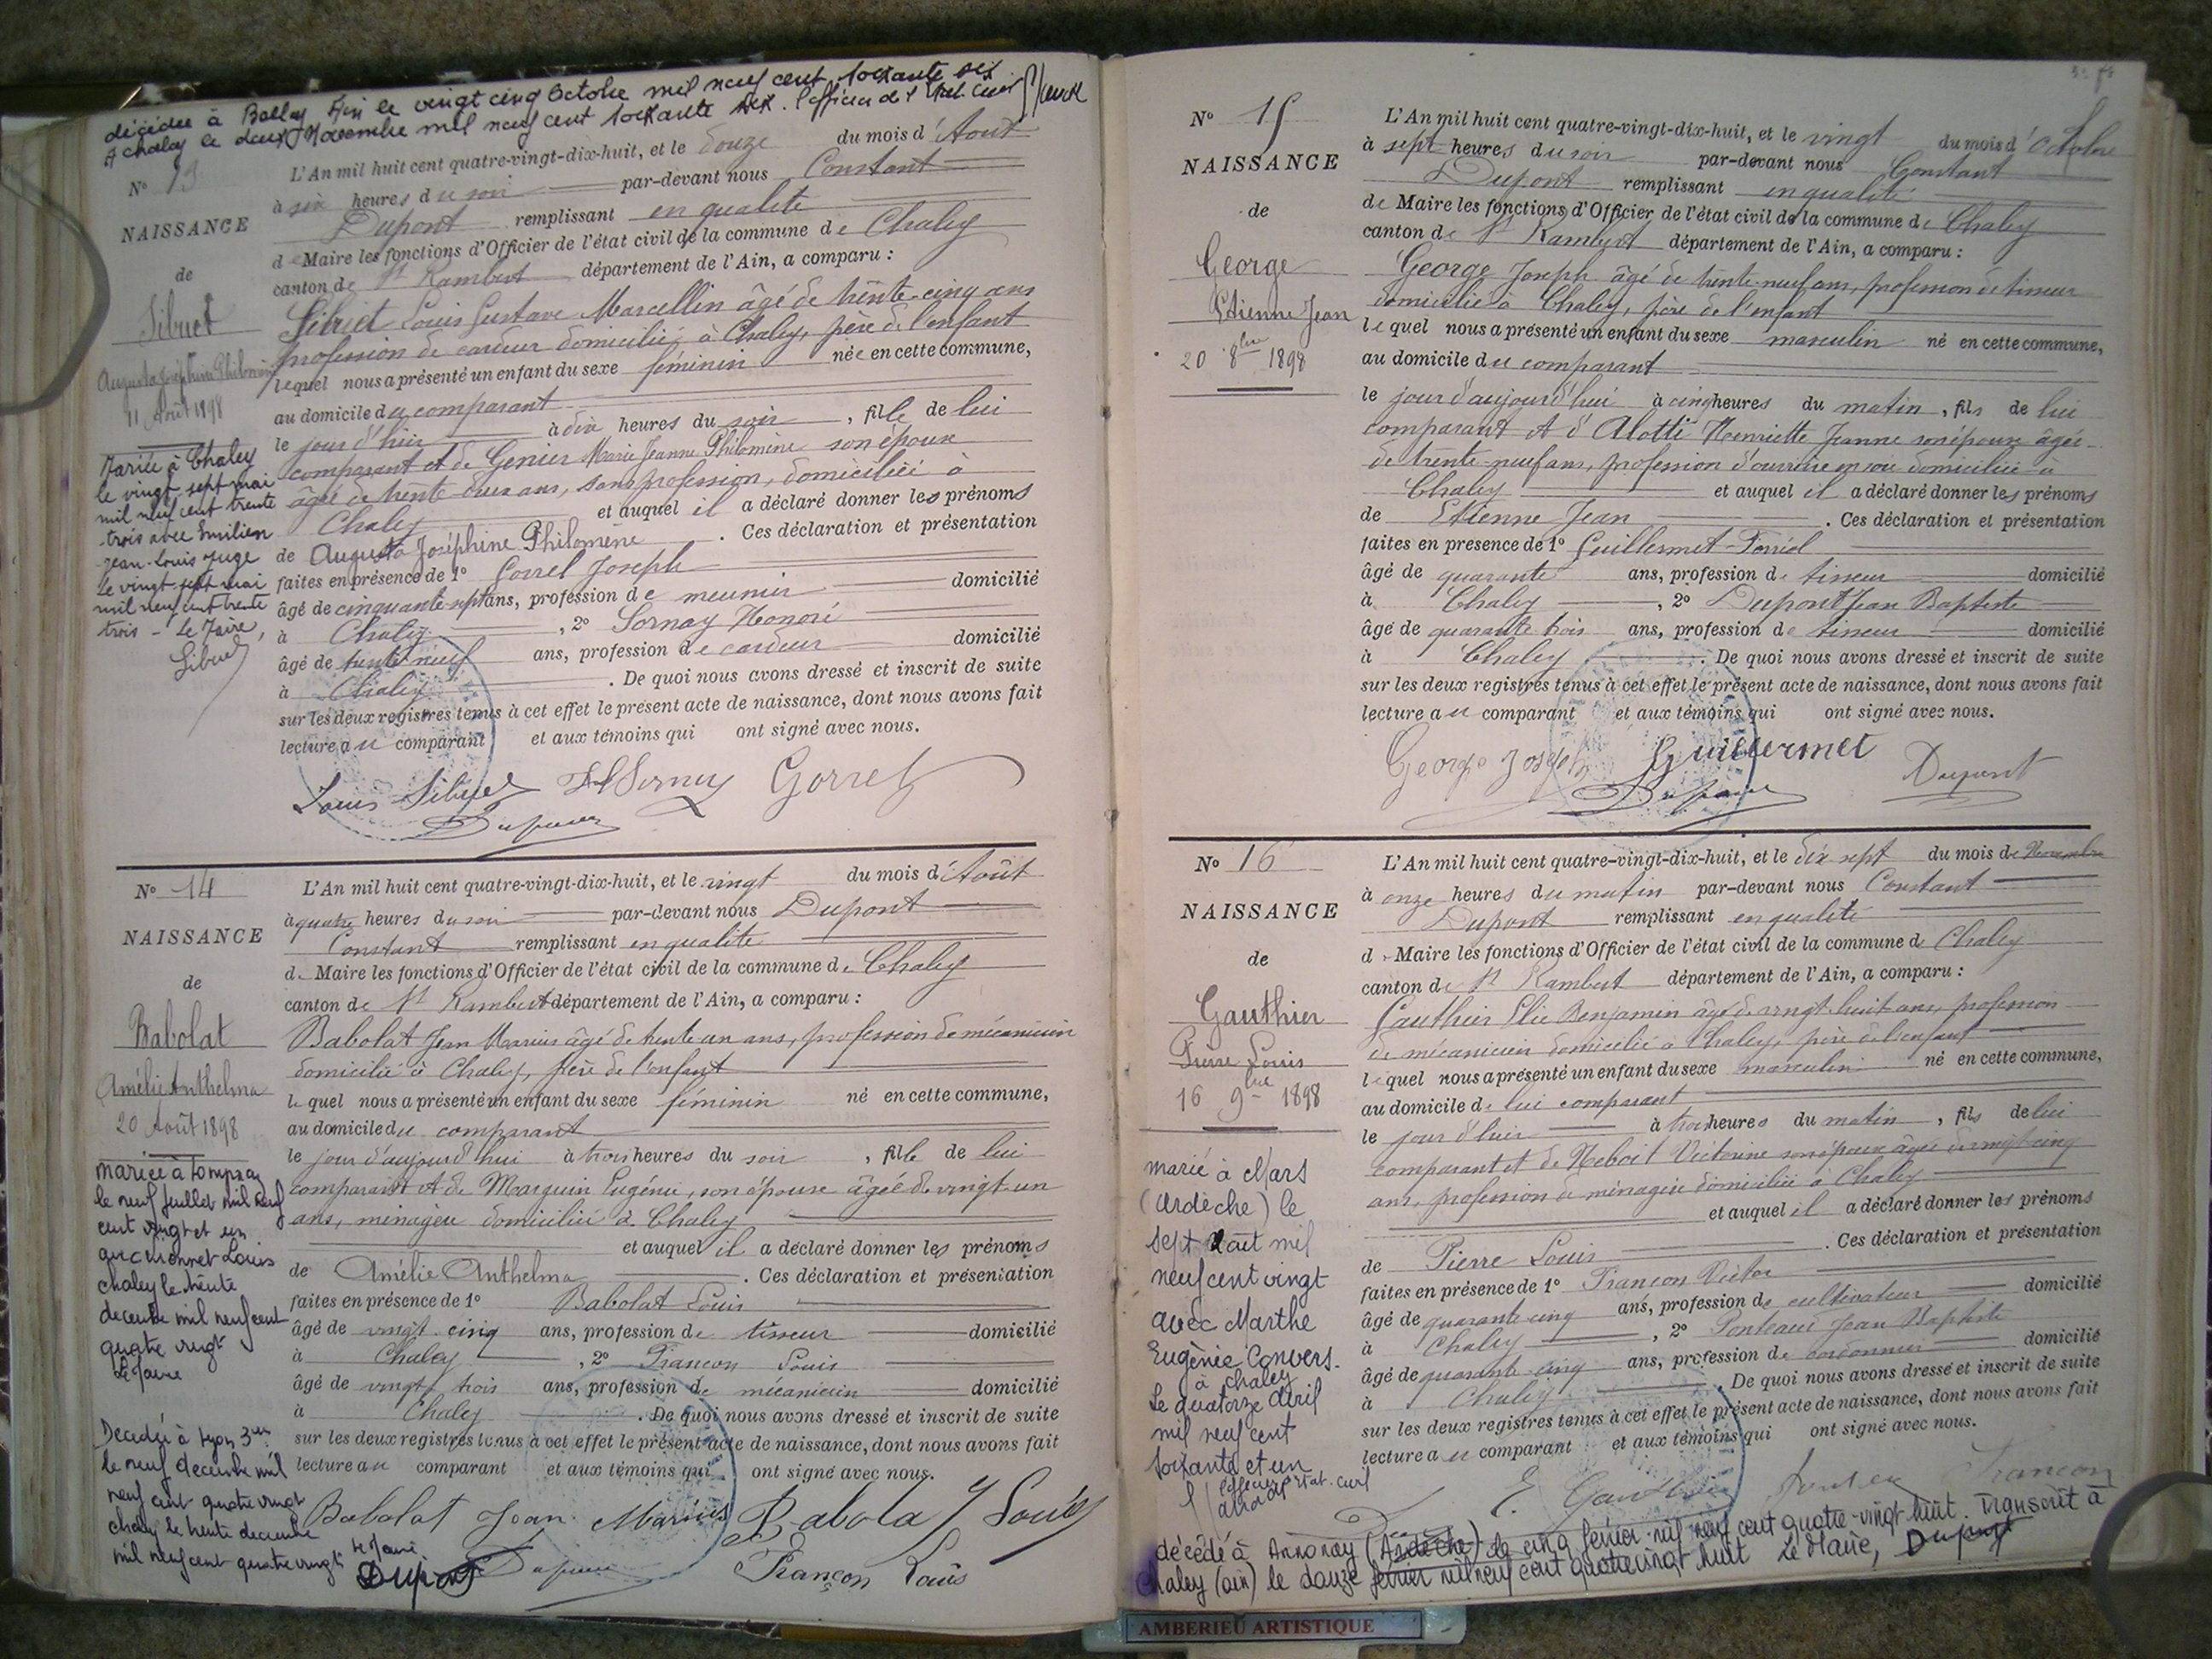 décédée à Belley Ain le vingt cinq Octobre mil neuf cent soixante dix
A chaley le deux Novembre mil neuf cent soixante dix. l'officier de l'Etat Civil
N° 13
NAISSANCE
de
Sibuet
Augusta Joséphine Philomène
11 Août 1898
Mariée à Chaley
le vingt-sept mai
mil neuf cent trente
trois avec Emilien
Jean-Louis Juge
le vingt-sept mai
mil neuf cent trente
trois - Le Maire,
Sibuet
L'An mil huit cent quatre-vingt-dix-huit, et le douze du mois d'Août
à six heures du soir par-devant nous Constant
Dupont remplissant en qualité
de Maire les fonctions d'Officier de l'état civil de la commune de Chaley
canton de St Rambert département de l'Ain, a comparu :
Sibuet Louis Gustave Marcellin âgé de trente-cinq ans
profession de cardeur domicilié à Chaley, père de l'enfant
lequel nous a présenté un enfant du sexe féminin née en cette commune,
au domicile du comparant
le jour d'hier à dix heures du soir, fille de lui
comparant et de Genier Marie Jeanne Philomène son épouse
âgé de trente-deux ans, sans profession, domiciliée à
Chaley et auquel il a déclaré donner les prénoms
de Augusta Joséphine Philomène. Ces déclaration et présentation
faites en présence de 1° Gorrel Joseph
âgé de cinquante-sept ans, profession de meunier domicilié
à Chaley, 2° Sornay Honoré
âgé de trente neuf ans, profession de cardeur domicilié
à Chaley. De quoi nous avons dressé et inscrit de suite
sur les deux registres tenus à cet effet le présent acte de naissance, dont nous avons fait
lecture au comparant et aux témoins qui ont signé avec nous.
Louis Sibuet H Sornay Gorrel
Dupont
N° 14
NAISSANCE
de
Babolat
Amélie Anthelma
20 Août 1898
mariée à
le neuf juillet mil neuf
cent vingt et un
avec Monnet Louis
chaley le trente
decembre mil neuf cent
quatre vingt
Le Maire
Decedée à Lyon 3em
le neuf decembre mil
neuf cent quatre vingt
chaley le trente decembre
mil neuf cent quatre vingt
Le Maire
Dupont
L'An mil huit cent quatre-vingt-dix-huit, et le vingt du mois d'Août
à quatre heures du soir par-devant nous Dupont
Constant remplissant en qualité
de Maire les fonctions d'Officier de l'état civil de la commune de Chaley
canton de St Rambert département de l'Ain, a comparu :
Babolat Jean Marius âgé de trente un ans, profession de mécanicien
domicilié à Chaley, père de l'enfant
lequel nous a présenté un enfant du sexe féminin né en cette commune,
au domicile du comparant
le jour d'aujourd'hui à trois heures du soir, fille de lui
comparant et de Marquin Eugénie, son épouse âgée de vingt-un
ans, ménagère domiciliée à Chaley
et auquel il a déclaré donner les prénoms
de Amélie Anthelma. Ces déclaration et présentation
faites en présence de 1° Babolat Louis
âgé de vingt-cinq ans, profession de tisseur domicilié
à Chaley, 2° Francon Louis
âgé de vingt trois ans, profession de mécanicien domicilié
à Chaley. De quoi nous avons dressé et inscrit de suite
sur les deux registres tenus à cet effet le présent acte de naissance, dont nous avons fait
lecture au comparant et aux témoins qui ont signé avec nous.
Babolat Jean Marius Babolat Louis
Dupont Françon Louis
N° 15
NAISSANCE
de
George
Etienne Jean
20 8bre 1898
L'An mil huit cent quatre-vingt-dix-huit, et le vingt du mois d'Octobre
à sept heures du soir par-devant nous Constant
Dupont remplissant en qualité
de Maire les fonctions d'Officier de l'état civil de la commune de Chaley
canton de St Rambert département de l'Ain, a comparu :
George Joseph âgé de trente-neuf ans, profession de tisseur
domicilié à Chaley, père de l'enfant
lequel nous a présenté un enfant du sexe masculin né en cette commune,
au domicile du comparant
le jour d'aujourd'hui à cinq heures du matin, fils de lui
comparant et d'Alotti Henriette Jeanne son épouse âgée
de trente-neuf ans, profession d'ouvrière en soie domiciliée à
Chaley et auquel il a déclaré donner les prénoms
de Etienne Jean. Ces déclaration et présentation
faites en présence de 1° Guillermet
âgé de quarante ans, profession de tisseur domicilié
à Chaley, 2° Dupont Jean Baptiste
âgé de quarante trois ans, profession de tisseur domicilié
à Chaley. De quoi nous avons dressé et inscrit de suite
sur les deux registres tenus à cet effet le présent acte de naissance, dont nous avons fait
lecture au comparant et aux témoins qui ont signé avec nous.
George Joseph Guillermet Dupont
Dupont
N° 16
NAISSANCE
de
Gauthier
Pierre Louis
16 9bre 1898
marié à Mars
(Ardèche) le
sept août mil
neuf cent vingt
avec Marthe
Eugènie Convers.
à chaley
Le quatorze Avril
mil neuf cent
soixante et un
l'officier d'état-civil
L'An mil huit cent quatre-vingt-dix-huit, et le dix sept du mois de Novembre
à onze heures du matin par-devant nous Constant
Dupont remplissant en qualité
de Maire les fonctions d'Officier de l'état civil de la commune de Chaley
canton de St Rambert département de l'Ain, a comparu :
Gauthier Elie Benjamin âgé de vingt-huit ans, profession
de mécanicien domicilié à Chaley, père de l'enfant
lequel nous a présenté un enfant du sexe masculin né en cette commune,
au domicile de lui comparant
le jour d'hier à trois heures du matin, fils de lui
comparant et de Reboit Victorine son épouse âgée de vingt-cinq
ans, profession de ménagère domiciliée à Chaley
et auquel il a déclaré donner les prénoms
de Pierre Louis. Ces déclaration et présentation
faites en présence de 1° Francon Victor
âgé de quarante cinq ans, profession de cultivateur domicilié
à Chaley, 2° Jean Baptiste
âgé de quarante-cinq ans, profession de cordonnier domicilié
à Chaley. De quoi nous avons dressé et inscrit de suite
sur les deux registres tenus à cet effet le présent acte de naissance, dont nous avons fait
lecture au comparant et aux témoins qui ont signé avec nous.
E. Gauthier Francon
décédé à Annonay (Ardèche) le cinq février mil neuf cent quatre-vingt huit. Transcrit à
Chaley (ain) le douze février mil neuf cent quatre vingt huit Le Maire, Dupont
AMBERIEU ARTISTIQUE